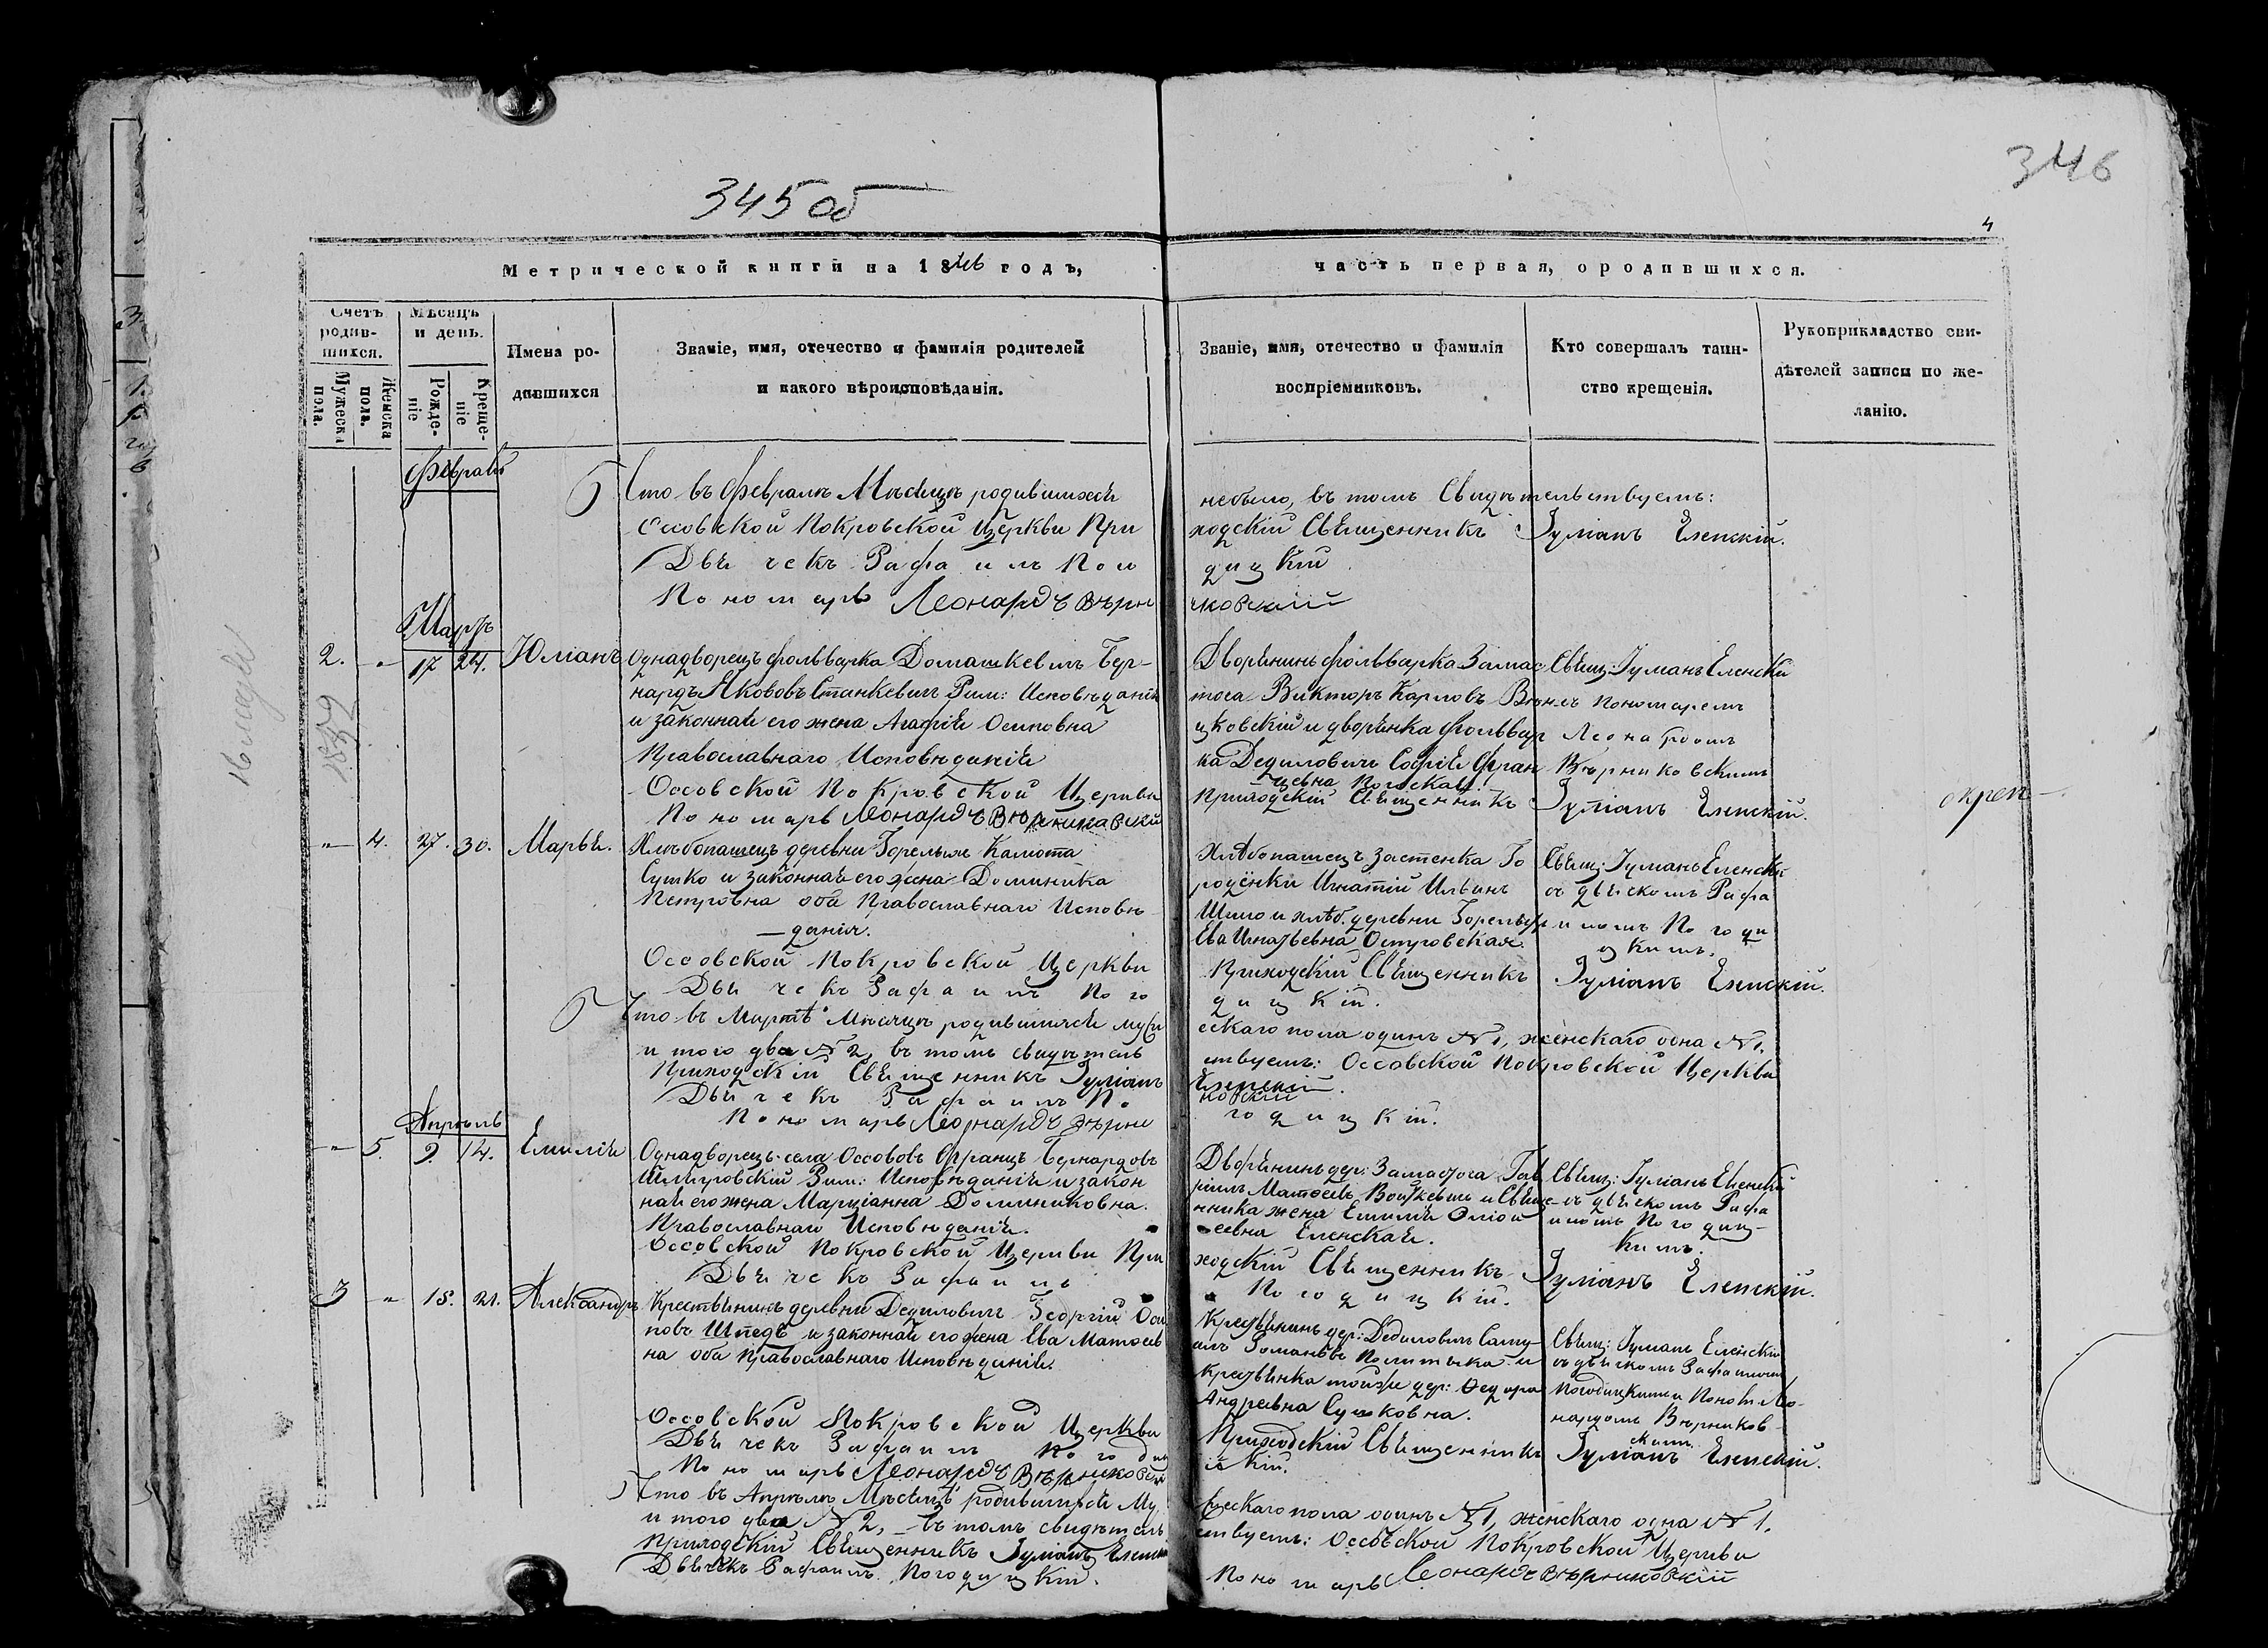 345 об
346
4
Метрической книги на 1846 годъ,
часть первая, ородившихся.
Счетъ родив-шихся.
Мужеска пола.
Женска пола.
Мѣсяцъ и день.
Рожде-ніе
Креще-ніе
Имена ро-
дившихся
Званіе, имя, отечество и фамилія родителей
и какого вѣроисповѣданія.
Званіе, имя, отечество и фамилія
воспріемниковъ.
Кто совершалъ таин-
ство крещенія.
Рукоприкладство сви-
дѣтелей записи по же-
ланію.
Февраль
Что въ Февралѣ Мѣсяцѣ родившихся
небыло, въ томъ Свидѣтельствуемъ:
Оссовской Покровской Церкви При
ходскій Священникъ Іуліанъ Еленскій.
Дьячекъ Рафаилъ Пого
дицкій
Пономарь Леонардъ Вѣрни
ковскій
Мартъ
2. -"- 17 24. Юліанъ
Однадворецъ фольварка Домашкевичъ Бер-
нардъ Якововъ Станкевичъ Рим: Исповѣданія
и законная его жена Агафія Осиповна
Православнаго Исповѣданія
Дворянинъ фольварка Замос
тоса Викторъ Карловъ Вѣн
цковскій и дворянка фольвар
ка Дедиловичъ Софія Фран
цевна
Свящ: Іуліанъ Еленскій
съ пономаремъ
Леонардомъ
Вѣрниковскимъ
Оссовской Покровской Церкви
Приходскій Священникъ Іуліанъ Еленскій.
Пономарь Леонардъ Вѣрниковскій
окреп
-"- 4. 27. 30. Марья.
Хлѣбопашецъ деревни Горелыхъ
Сушко и законная его жена Доминика
Петровна оба Православнаго Исповѣ
данія.
Хлѣбопашецъ застенка Го
родёнки Игнатій Ильинъ
Шило и хлѣб. деревни
Ева Игнатьевна
Свящ: Іуліанъ Еленскій
съ дьячкомъ Рафа
иломъ Погоди
цкимъ.
Оссовской Покровской Церкви
Приходскій Священникъ Іуліанъ Еленскій.
Дьячекъ Рафаилъ Пого
дицкій.
Что въ Мартѣ Мѣсяцѣ родившихся муж
ескаго пола одинъ №1, женскаго одна №1.
и того два №2, въ томъ свидѣтель
ствуемъ: Оссовской Покровской Церкви
Приходскій Священникъ Іуліанъ
Еленскій.
Дьячекъ Рафаилъ По
годицкій.
Пономарь Леонардъ Вѣрни
ковскій
Апрѣль
-"- 5. 9. 14. Емилія
Однадворецъ села Оссововъ Францъ Бернардовъ
Рим: Исповѣданія и закон
ная его жена Марціанна Доминиковна.
Православнаго Исповѣданія.
Дворянинъ дер: Замостоса Гав
ріилъ Матѳеевъ Войткевичъ и Свяще
нника жена Емилія
Еленская.
Свящ: Іуліанъ Еленскій
съ дьячкомъ Рафа
иломъ Погодиц-
кимъ.
Оссовской Покровской Церкви При
ходскій Священникъ Іуліанъ Еленскій.
Дьячекъ Рафаилъ
Погодицкій.
3 " 18. 21. Александръ
Крестьянинъ деревни Дедиловичъ Георгій Оси
повъ Шпедъ и законная его жена Ева Матѳеев
на оба Православнаго Исповѣданія.
Крестьянинъ дер: Дедиловичъ Саму
илъ Романовъ и
крестьянка тойже дер: Ѳедора
Андреевна Сушковна.
Свящ: Іуліанъ Еленскій
съ дьячкомъ Рафаиломъ
Погодицкимъ и Поном: Лео-
нардомъ Вѣрников-
скимъ.
Оссовской Покровской Церкви
Приходскій Священникъ Іуліанъ Еленскій.
Дьячекъ Рафаилъ Погодиц
кій.
Пономарь Леонардъ Вѣрниковскій
Что въ Апрѣлѣ Мѣсяцѣ родившихся Му
жескаго пола одинъ №1, женскаго одна №1.
и того два №2, въ томъ свидѣтель
ствуемъ: Оссовской Покровской Церкви
Приходскій Священникъ Іуліанъ Еленскій
Дьячекъ Рафаилъ Погодицкій.
Пономарь Леонардъ Вѣрниковскій